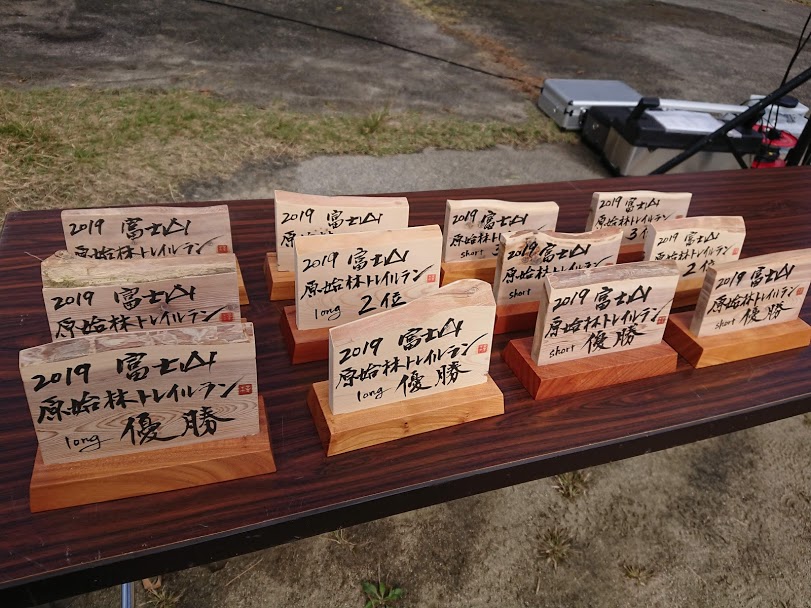 2019 富士山
原始林トレイルラン
2019 富士山
2019 富士山
原始林トレイルラン
short 3
2019 富士山
原始林トレイルラン
3位
2019 富士山
原始林トレイルラン
long
2019 富士山
原始林トレイルラン
long 2位
2019 富士山
原始林トレイルラン
short
2019 富士山
原始林トレイルラン
2位
2019 富士山
原始林トレイルラン
long 優勝
2019 富士山
原始林トレイルラン
long 優勝
2019 富士山
原始林トレイルラン
short 優勝
2019 富士山
原始林トレイルラン
short 優勝